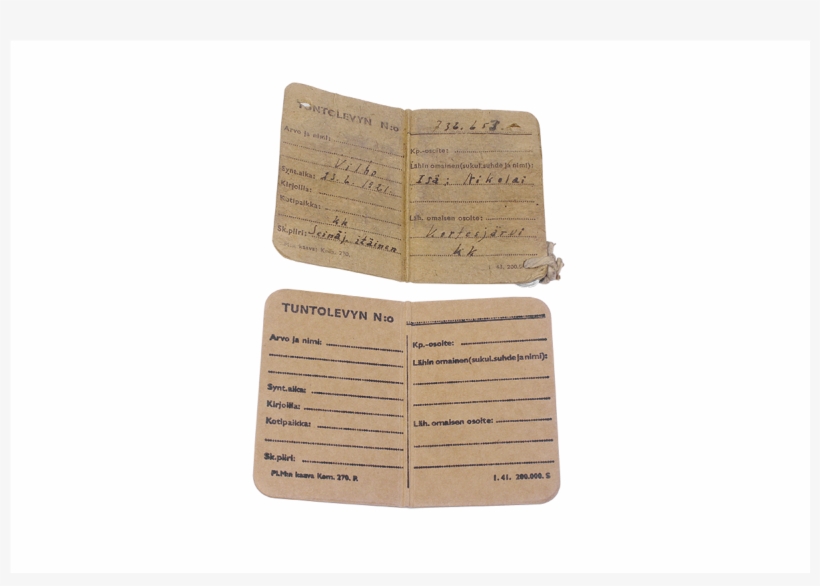 TUNTOLEVYN N:o
Arvo ja nimi:
Vilho
Synt.aika: 23. 6. 1921.
Kirjoilla:
Kotipaikka:
kk
Sk.piiri: Seinäj. itäinen
Kaava: Kam. 270.
Kp.-osoite:
Lähin omainen(sukul.suhde ja nimi):
Isä; Nikolai
Läh. omaisen osoite:
kk
1. 41. 200.
TUNTOLEVYN N:o
Arvo ja nimi:
Synt.aika:
Kirjoilla:
Kotipaikka:
Sk.piiri:
PLM:n kaava Kam. 270. R
Kp.-osoite:
Lähin omainen(sukul.suhde ja nimi):
Läh. omaisen osoite:
1. 41. 200.000. S